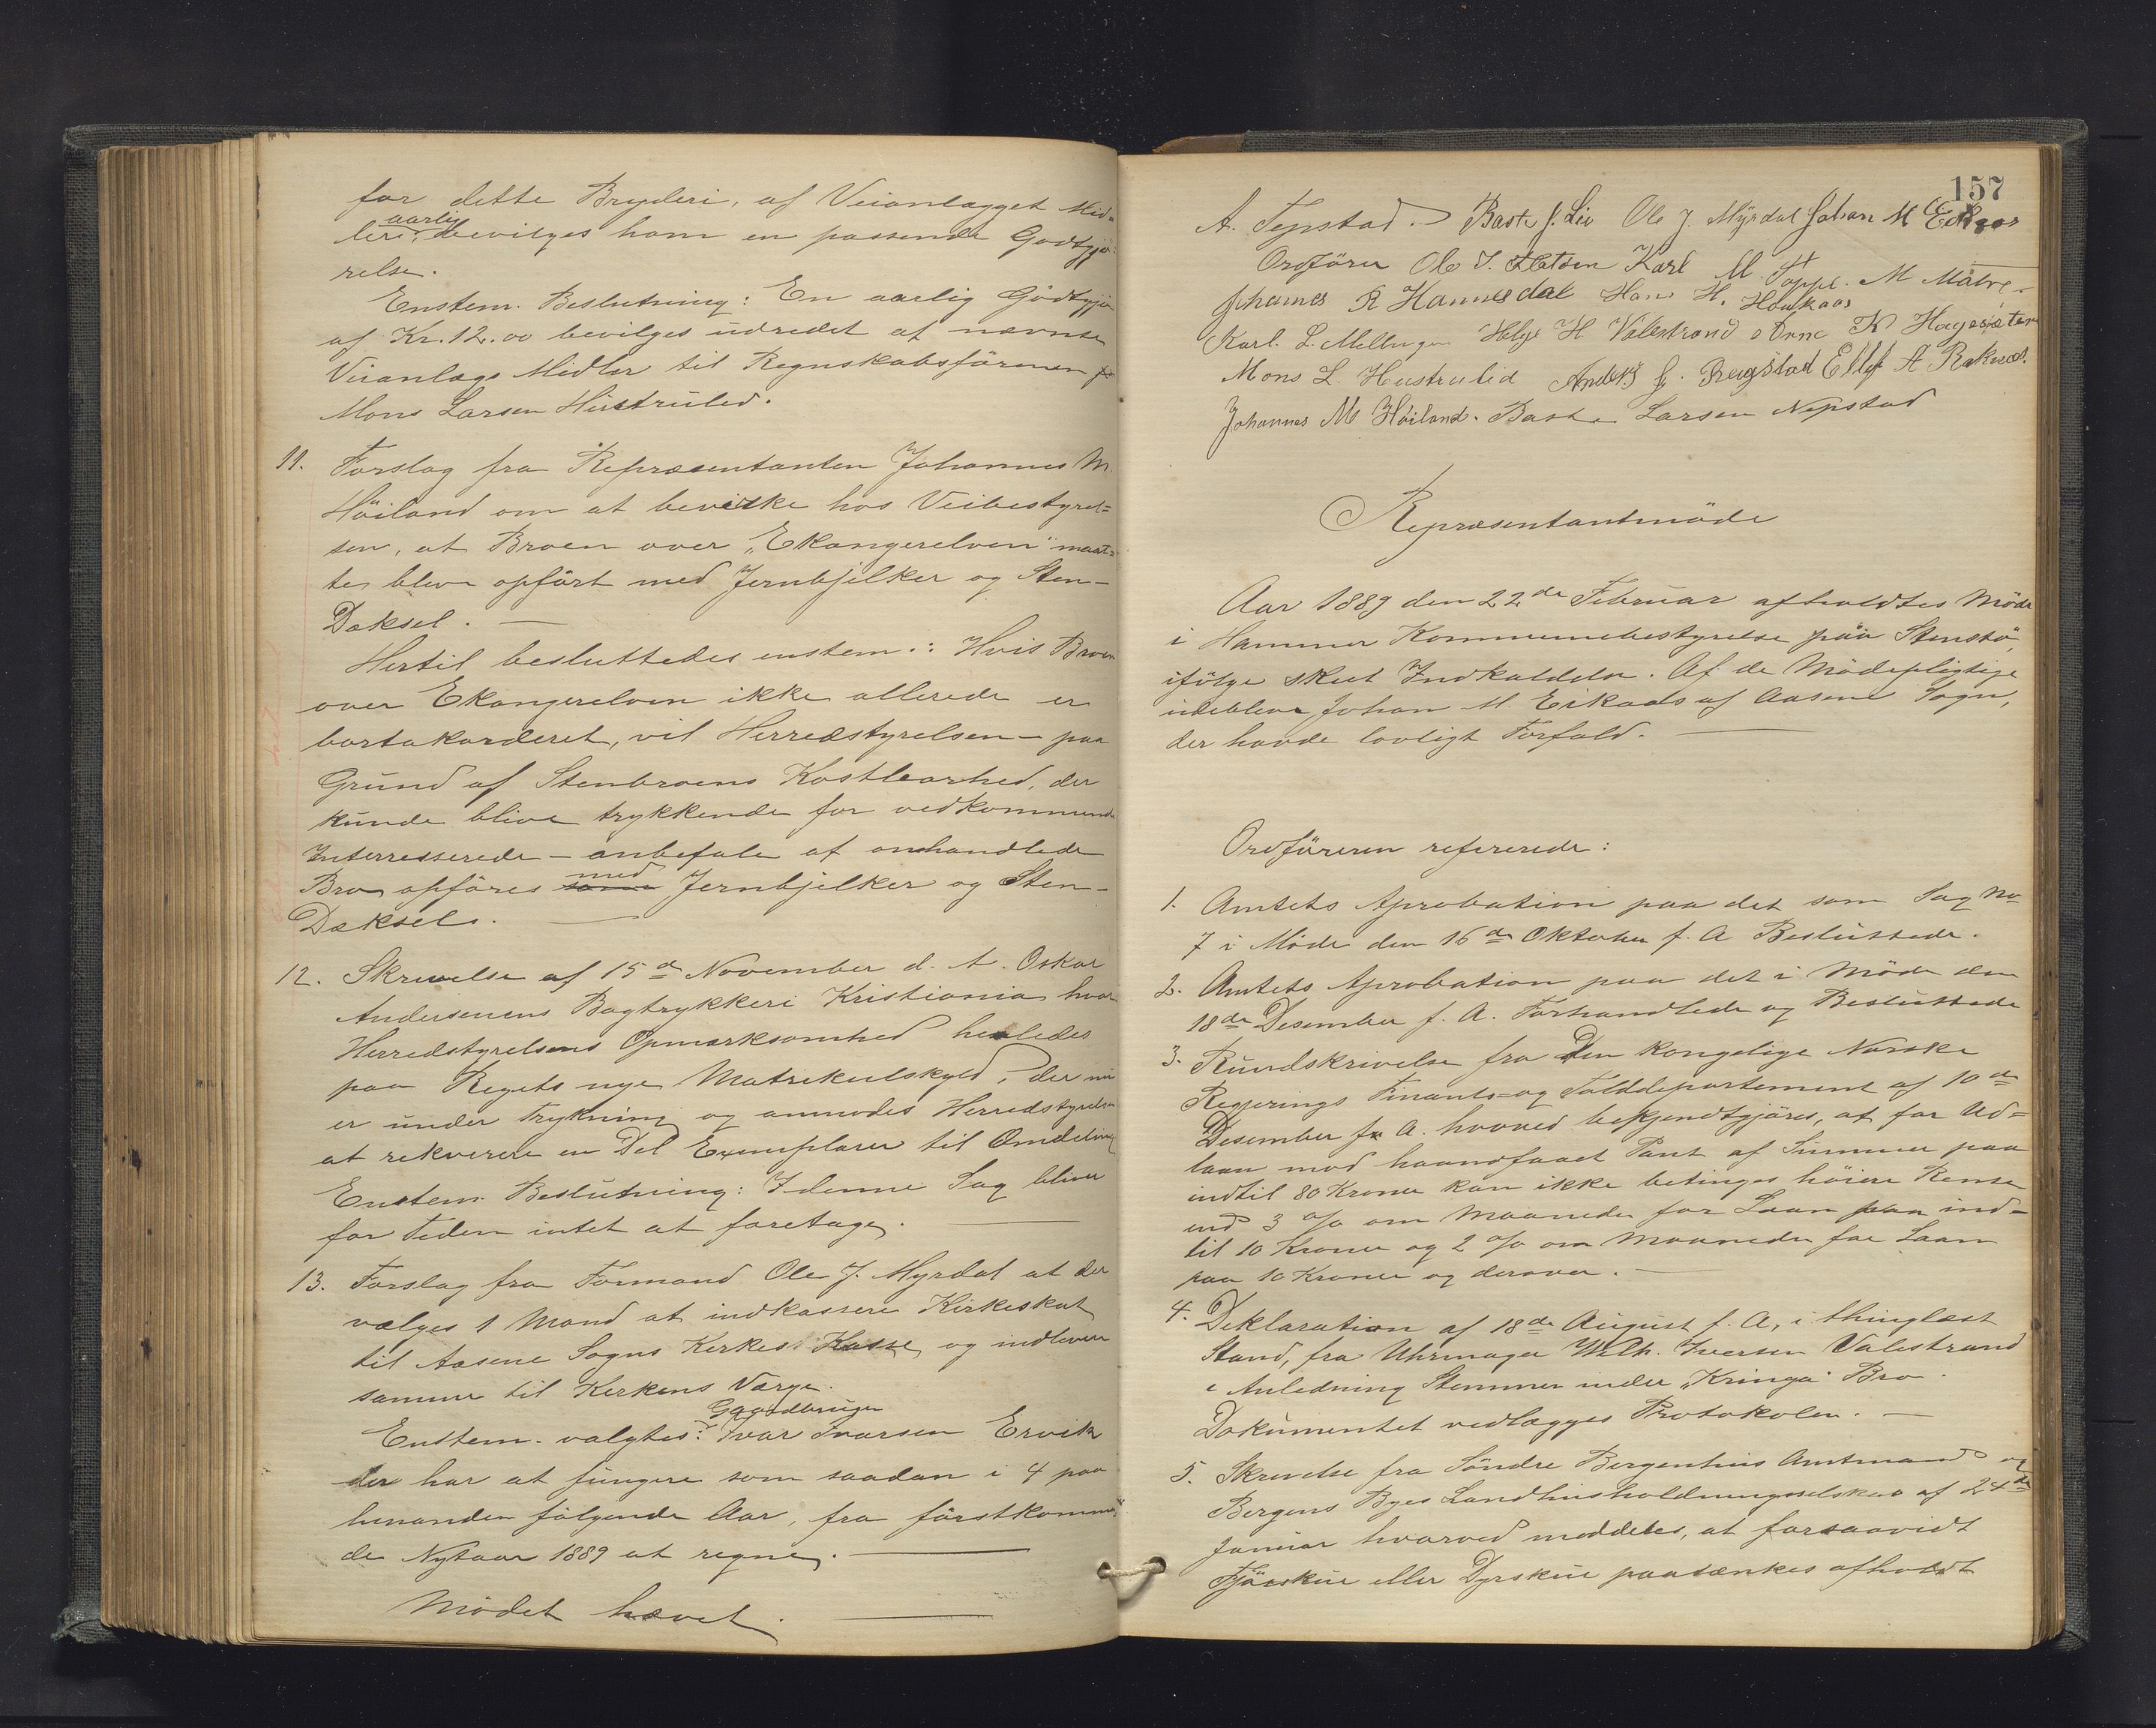 for dette Bryderi, af Veianlægget Mid=
aarlig
ler; bevilges ham en passende Godtgjö-
relse.
Enstem. Beslutning: En aarlig Godtgjör
af Kr. 12.00 bevilges udredet af nævnte
Veianlægs Midler til Regnskabsföreren
Mons Larsen Hustrulid.
11. Forslag fra Repræsentanten Johannes M.
Höiland om at bevirke hos Veibestyrel=
sen, at Broen over "Ekangerelven" maat=
te blive opfört med Jernbjelker og Sten-
Dæksel. —
Hertil besluttedes enstem.: Hvis Broen
over Ekangerelven ikke allerede er
bortakorderet, vil Herredstyrelsen - paa
Grund af Stenbroens Kostbarhed, der
kunde blive trykkende for vedkommende
Interresserede - anbefale at omhandlede
med
Bro opföres som Jernbjelker og Sten-
Dæksel. —
12. Skrivelse af 15de November d. A. Oskar
Andersens Bogtrykkeri Kristiania hvor
Herredstyrelsens Opmærksomhed henledes
paa Rigets nye Matrikulskyld, der nu
er under Trykning og anmodes Herredstyrelsen
at rekverere en Del Exemplarer til Omdeling
Enstem. Beslutning: I denne Sag bliver
for Tiden intet at foretage. —
13. Forslag fra Formand Ole J. Myrdal at der
vælges 1 Mand at indkassere Kirkeskat
til Aasene Sogns Kirkes Kasse, og indlevere
samme til Kirkens Værge.
Gaardbruger
Enstem. valgtes: Ivar Ivarsen Ervik
der har at fungere som saadan i 4 paa
hinanden fölgende Aar, fra förstkommen
de Nytaar 1889 at regne. —
Mödet hævet. —
157
A. Tepstad. Baste J. Lie Ole J. Myrdal Johan M Eikaas
Ordförer Ole J. Flatöen Karl M. Toppe. M Matre
Johannes R Hannisdal Hans H. Haukaas
Karl. L. Mellingen Helge H. Valestrand Arne K Hagesæter
Mons L. Hustrulid Anders J. Reigstad Ellef A Raknes.
Johannes M Höiland. Baste Larsen Nepstad
Repræsentantmöde
Aar 1889 den 22de Februar afholdtes Möde
i Hammer Kommunebestyrelse paa Stenstö,
ifölge skeet Indkaldelse. Af de Mödepligtige
udeblev Johan M. Eikaas af Aasene Sogn,
der havde lovligt Forfald. —
Ordföreren refererede:
1. Amtets Aprobation paa det som Sag No
7 i Möde den 16de Oktober f. A Besluttede.
2. Amtets Aprobation paa det i Möde den
18de Desember f. A. Forhandlede og Besluttede
3. Rundskrivelse fra Den kongelige Norske
Regjerings Finants- og Tolddepartement af 10de
Desember f. A. hvorved bekjendtgjöres, at for Ud=
laan mod haandfaaet Pant af Summer paa
indtil 80 Kroner kan ikke betinges höiere Rente
end 3 % om Maaneden for Laan paa ind-
til 10 Kroner og 2 % om Maaneden for Laan
paa 10 Kroner og derover. —
4. Deklaration af 18de August f. A, i thinglæst
Stand, fra Uhrmager Wilh. Iversen Valestrand
i Anledning Stemmer under "Kringa" Bro.
Dokumentet vedlægges Protokolen. —
5. Skrivelse fra Söndre Bergenhus Amtmand og
Bergens Byes Landhusholdningsselskab af 24de
Januar hvorved meddeles, at forsaavidt
Fjöskue eller Dyrskue paatænkes afholdt